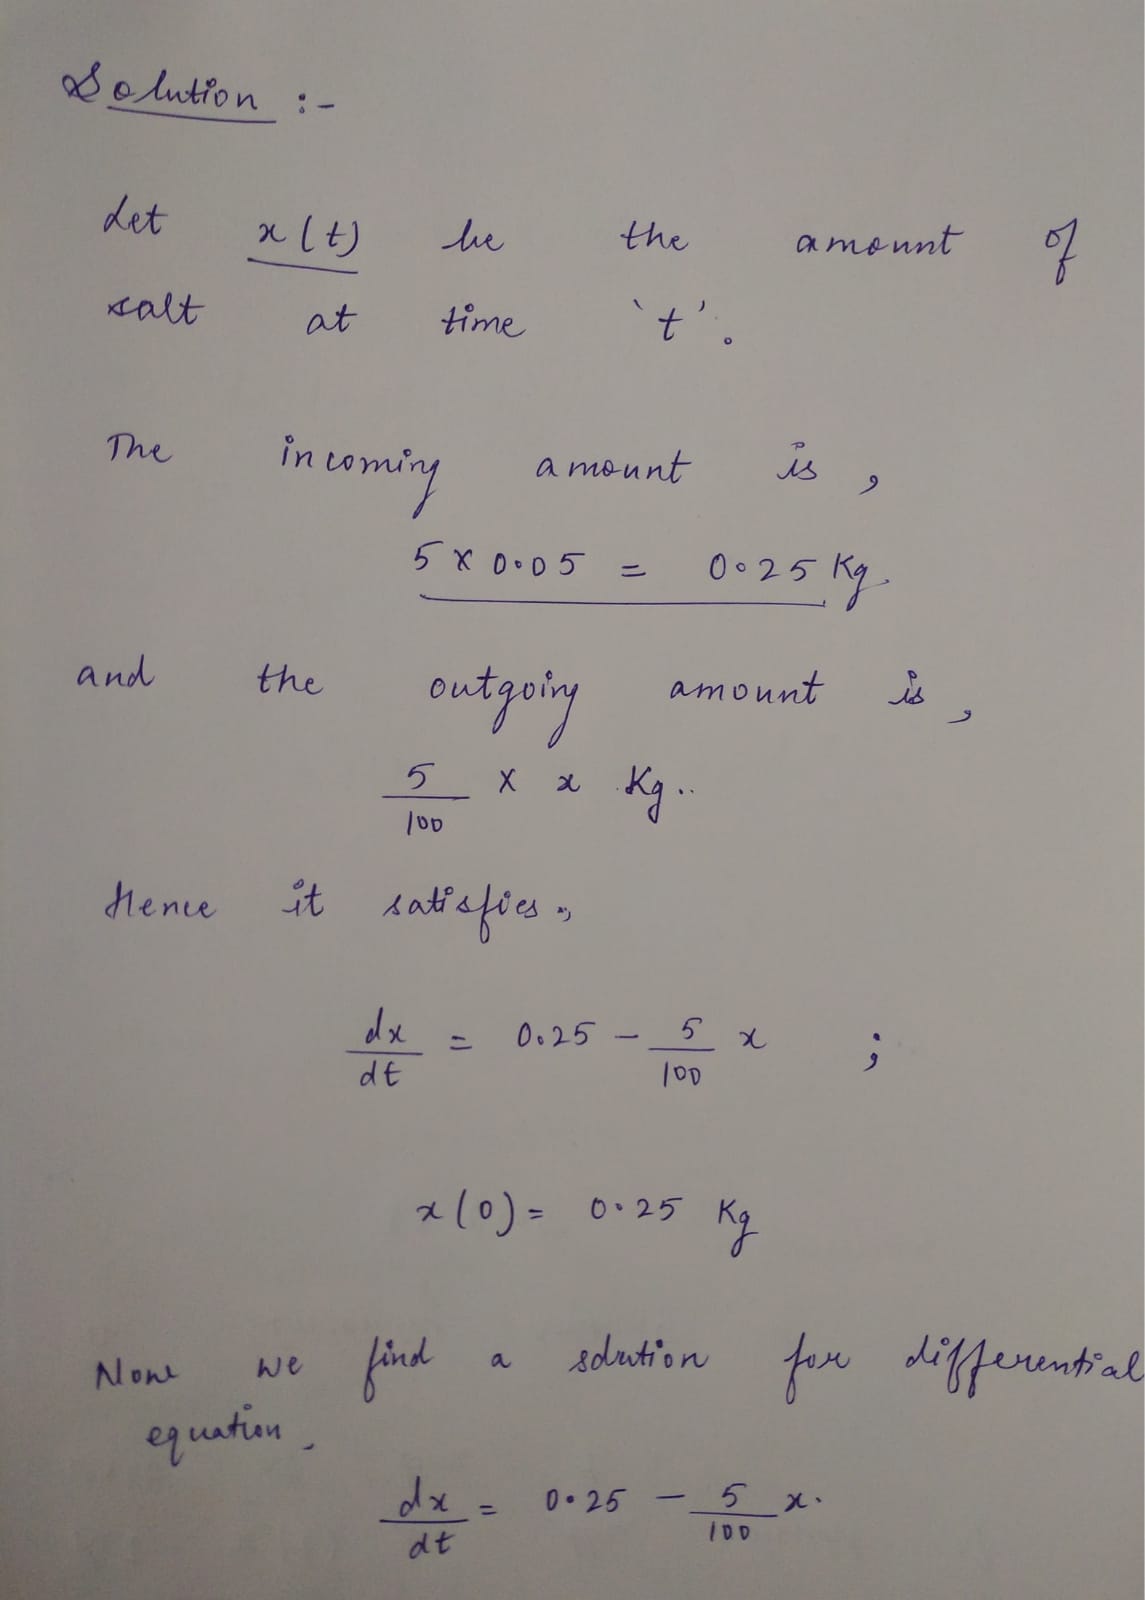 Solution :-
Let x(t) be the amount of
salt at time 't'.
The incoming amount is,
5 x 0.05 = 0.25 Kg.
and the outgoing amount is,
5/100 x x Kg..
Hence it satisfies,
dx/dt = 0.25 - 5/100 x ;
x(0) = 0.25 Kg
Now we find a solution for differential
equation,
dx/dt = 0.25 - 5/100 x.